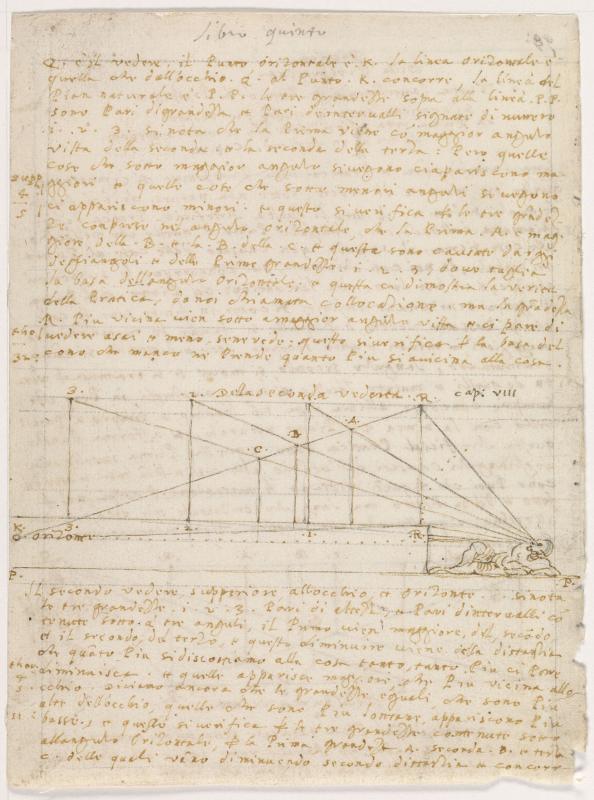 libro quinto
Q. è il vedere, il Punto orizontale è K. la linea orizontale è
quella che dall'occhio. Q. al Punto. K. concorre, la linea del
Pian naturale è. P. P. le tre grandezze sopra alla linea. P. P.
sono Pari di grandezza, et Pari de intervalli signate di numero
1. 2. 3. si nota che la Prima viene cō maggior angulo
vista della seconda et la seconda della terza: Pero quelle
cose che sotto maggior angulo si vegono ci apariscono ma
supp.
4
5
ggiori et quelle cose che sotto menori anguli si vegono
ci appariscono minori. et questo si verifica le tre grandez
ze comprese ne angulo orizontale, che la Prima. A. è mag
giore della. B. et la. B. della. C. et queste sono causate da
detti angoli et delle Prime grandezze. 1. 2. 3. dove taglia
la basa dell'angulo orizontale, et questa ci dimostra la verità
della Pratica, da noi chiamata collocatione. ma la grandezza
R. Piu vicina vien sotto maggior angulo vista et ci pare di
theo.
32
vedere asai et meno se ne vede: questo si verifica la basa del
cono che manco ne Prende quanto Piu si avicina alla cosa.
3. 2. Della seconda veduta. R. cap: VIII
C. B. A.
K. 3. 2. 1. R.
orizonte
P. P.
Il secondo vedere, supperiore all'occhio, et orizonte. si nota
le tre grandezze. 1. 2. 3. Pari di altezza et Pari d'intervalli cō
tenute sotto a tre anguli, il Primo vien maggiore, del secōdo
et il secondo, da terzo, et questo diminuire viene della distantia
che quāto Piu si discostiamo alla cosa tanto, tanto Piu ci Pare
theor.
4
5
diminuisca. et quelle apparisce maggiori, che Piu vicina all'o
cchio. Diciamo ancora che le grandezze eguali che sono Piu
alte dell'occhio, quelle che sono Piu lontane, appariscono Piu
11
basse, et questo si verifica le tre grandezze contenute sotto
all'angulo Orizontale, la Prima grandezza. A. seconda. B. et terza
C. delle quali vano diminuendo secondo distantia et concorr